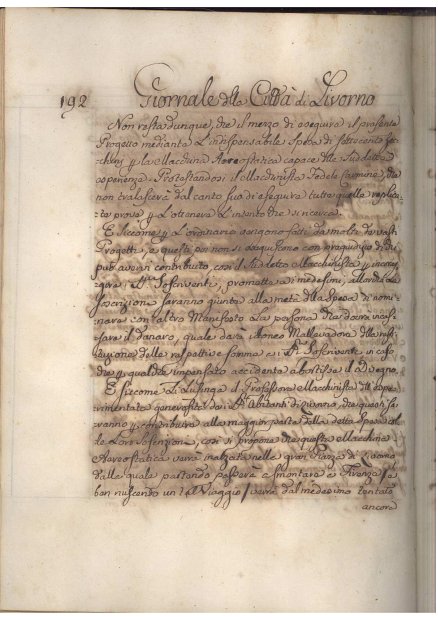 192 Giornale della Città di Livorno
Non resta dunque, che il mezzo di eseguire il presente
Progetto mediante l'indispensabile Spesa di settecento
p la Macchina Aereostatica capace delle suddette
esperienze. Protestandosi il Macchinista Fedele Carmine, che
non tralascerà dal canto suo di eseguire tutte quelle replica-
te prove p l'ottenere l'intento
E siccome p l'ordinario vengono fatti da molti
Progetti, e questi poi non si eseguiscono con pregiudizio di chi
può avervi contribuito, così il Macchinista
Sig.ri Soscriventi, promette ai medesimi, allorchè la
Soscrizione saranno giunte alla metà della Spesa di nomi-
nare con altro Manifesto la persona che dovrà incas-
sare il Danaro, quale darà idoneo Mallevadore della resti-
tuzione delle rispettive somme ai Sig.ri Soscriventi in caso
che p qualche impensato accidente abortisse il
E siccome si lusinga il Professore Macchinista della sper-
imentata generosità dei Sig.ri Abitanti di Livorno, che questi sa-
ranno p contribuire alla maggior parte della detta spesa
le Loro Soscrizioni, così si propone che questa Macchina
Aereostatica verrà inalzata nella gran Piazza di Livorno
dalla quale partendo passerà a smontare a Firenze, e
ben riuscendo un tal Viaggio, verrà dal medesimo tentato
ancora